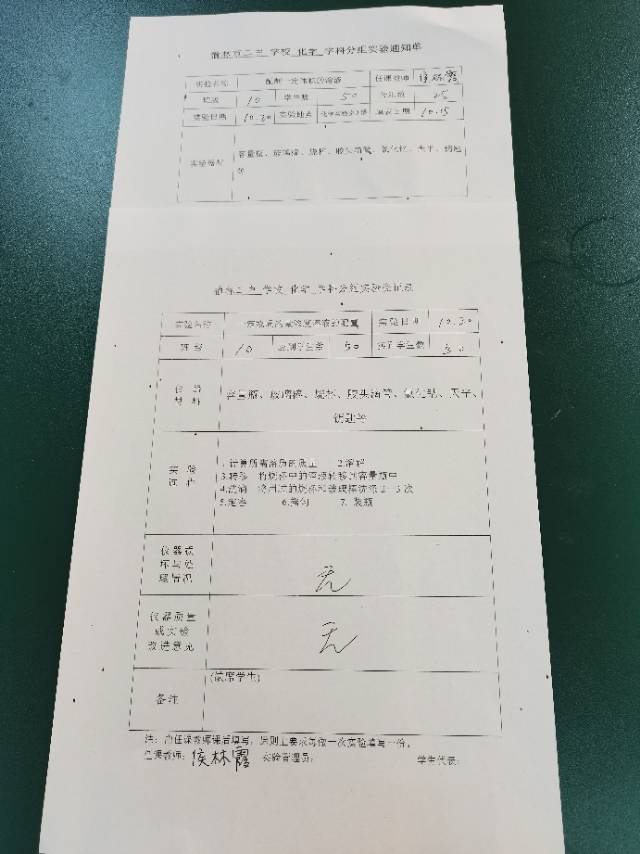 学校 化学 学科分组实验通知单
实验名称 配制一定体积的溶液 任课教师 侯林霞
班级 10 学生数 50 25
实验日期 10.20 实验地点 10.15
实验器材 容量瓶、玻璃棒、烧杯、胶头滴管、氯化钠、天平、钥匙
等
学校 化学 学科分组实验
实验名称 实验日期 10.20
班级 10 应到学生数 50 实到学生数 50
仪器
材料
容量瓶、玻璃棒、烧杯、胶头滴管、氯化钠、天平、
钥匙等
实验
操作
1.计算所需溶质的质量 2.溶解
3.转移 将烧杯中的溶液转移到容量瓶中
4.洗涤 将用过的烧杯和玻璃棒洗涤2-3次
5.定容 6.摇匀 7.装瓶
仪器损
坏与处
理情况
无
仪器质量
或实验
改进意见
无
备注
(缺席学生)
注：由任课教师课后填写，原则上要求每做一次实验填写一份。
任课教师：侯林霞 实验管理员： 学生代表：